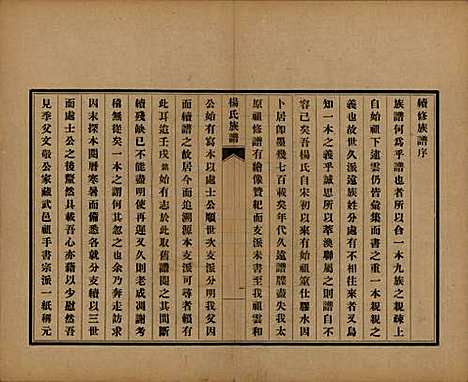 續修族譜序
族譜何為乎譜也所以合一本九族之親疎上
自始祖下逮雲仍皆彙集而書之重一本親親之
義也故世久派遠族姓分而不相往來者甚多矣
知一本之義乎誠思所以萃渙聯屬之則譜自不
容已矣吾楊氏自宋初以來有始祖室仕膠水因
卜居即墨幾七百載矣年代久遠譜牒盡失我太
原祖修譜有繪像贊祀而支派未書至我祖雲和
楊氏族譜
公始有寫本以處士公順世次支派分明我父因
而續譜之故居今而追溯源本支派可尋可稽者
此耳迨壬戌 始有志於此取舊譜閱之其間斷
續殘缺已不能盡明再遲又久則老成凋謝考
稽無從矣一本之譜何其忽也余乃奔走訪求
因末探本閱曆寒暑而備悉各就分支續以三世
而處士公之遺譜燦然具載吾心亦藉以少慰然吾
見季父文敬公家藏武邑祖手書宗派一紙稱元